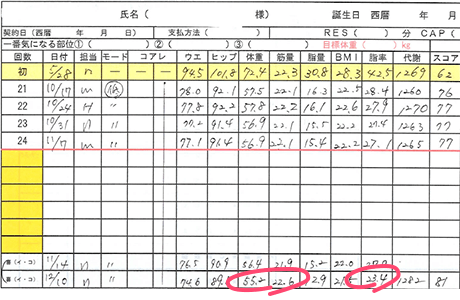 氏名( 様) 誕生日 西暦 年 月
契約日(西暦 年 月 日) 支払方法( ) RES( )分 CAP(
一番気になる部位①( )②( )③( ) 目標体重( )kg
回数 日付 担当 モード コアレ ウエ ヒップ 体重 筋量 脂量 BMI 脂率 代謝 スコア
初 /28 n ー ー 94.5 101.8 72.4 22.3 30.8 28.3 42.5 1269 62
21 10/17 m 78.0 92.1 57.5 22.1 16.3 22.5 28.4 1260 76
22 10/24 H 〃 77.8 92.2 57.8 22.2 16.1 22.6 27.9 1270 77
23 10/31 n 〃 77.2 91.4 56.9 22.1 15.5 22.2 27.4 1263 77
24 11/7 m 〃 77.1 91.4 56.9 22.1 15.4 22.2 27.1 1265 77
(イ・コ) 11/14 n 〃 76.5 90.9 56.4 21.9 15.2 22.0
(イ・コ) 12/10 n 〃 74.6 55.2 22.6 2.9 23.4 1282 81